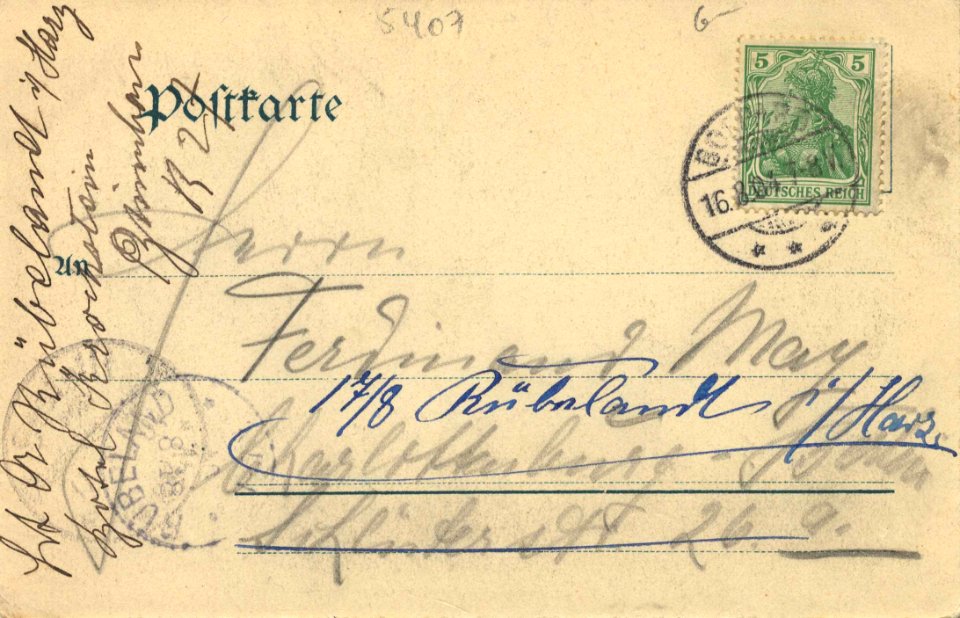 5407
6-
Postkarte
5 5
DEUTSCHES REICH
16.8.
7-8
An
Herrn
Ferdinand May
17/8 Rübeland i/Harz.
Charlottenburg-
Schlüterstr. 26
RÜBELAND
Rübeland i/Harz
Hotel